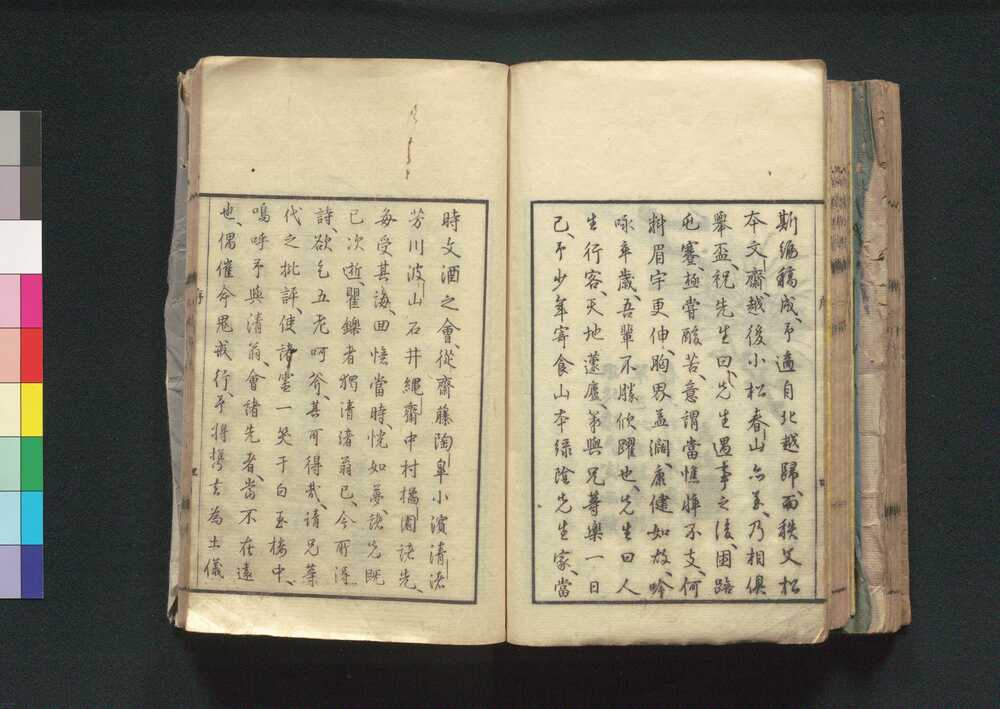 斯編稿成、予適自北越歸、而秩父松
本文齋、越後小松春山亦至、乃相俱
舉盃、祝先生曰、先生遇事之後、困踣
屯蹇、極嘗酸苦、意謂當憔悴不支、何
料眉宇更伸、胸界益濶、康健如故、吟
咏卒歲、吾輩不勝欣躍也、先生曰人
生行客、天地蘧廬、務與兄等樂一日
已、予少年寄食山本綠陰先生家、當
時文酒之會、從齋藤陶皐小濱清渚
芳川波山石井繩齋中村橘園諸先、
每受其誨、回憶當時、恍如夢、諸先既
已次逝、矍鑠者獨清渚翁已、今所得
詩、欲乞五老呵斧、其可得哉、請兄葉
代之批評、使諸靈一笑于白玉樓中、
嗚呼予與清翁、會諸先者、當不在遠
也、偶催今鬼戒行、予將攜去為土儀
序